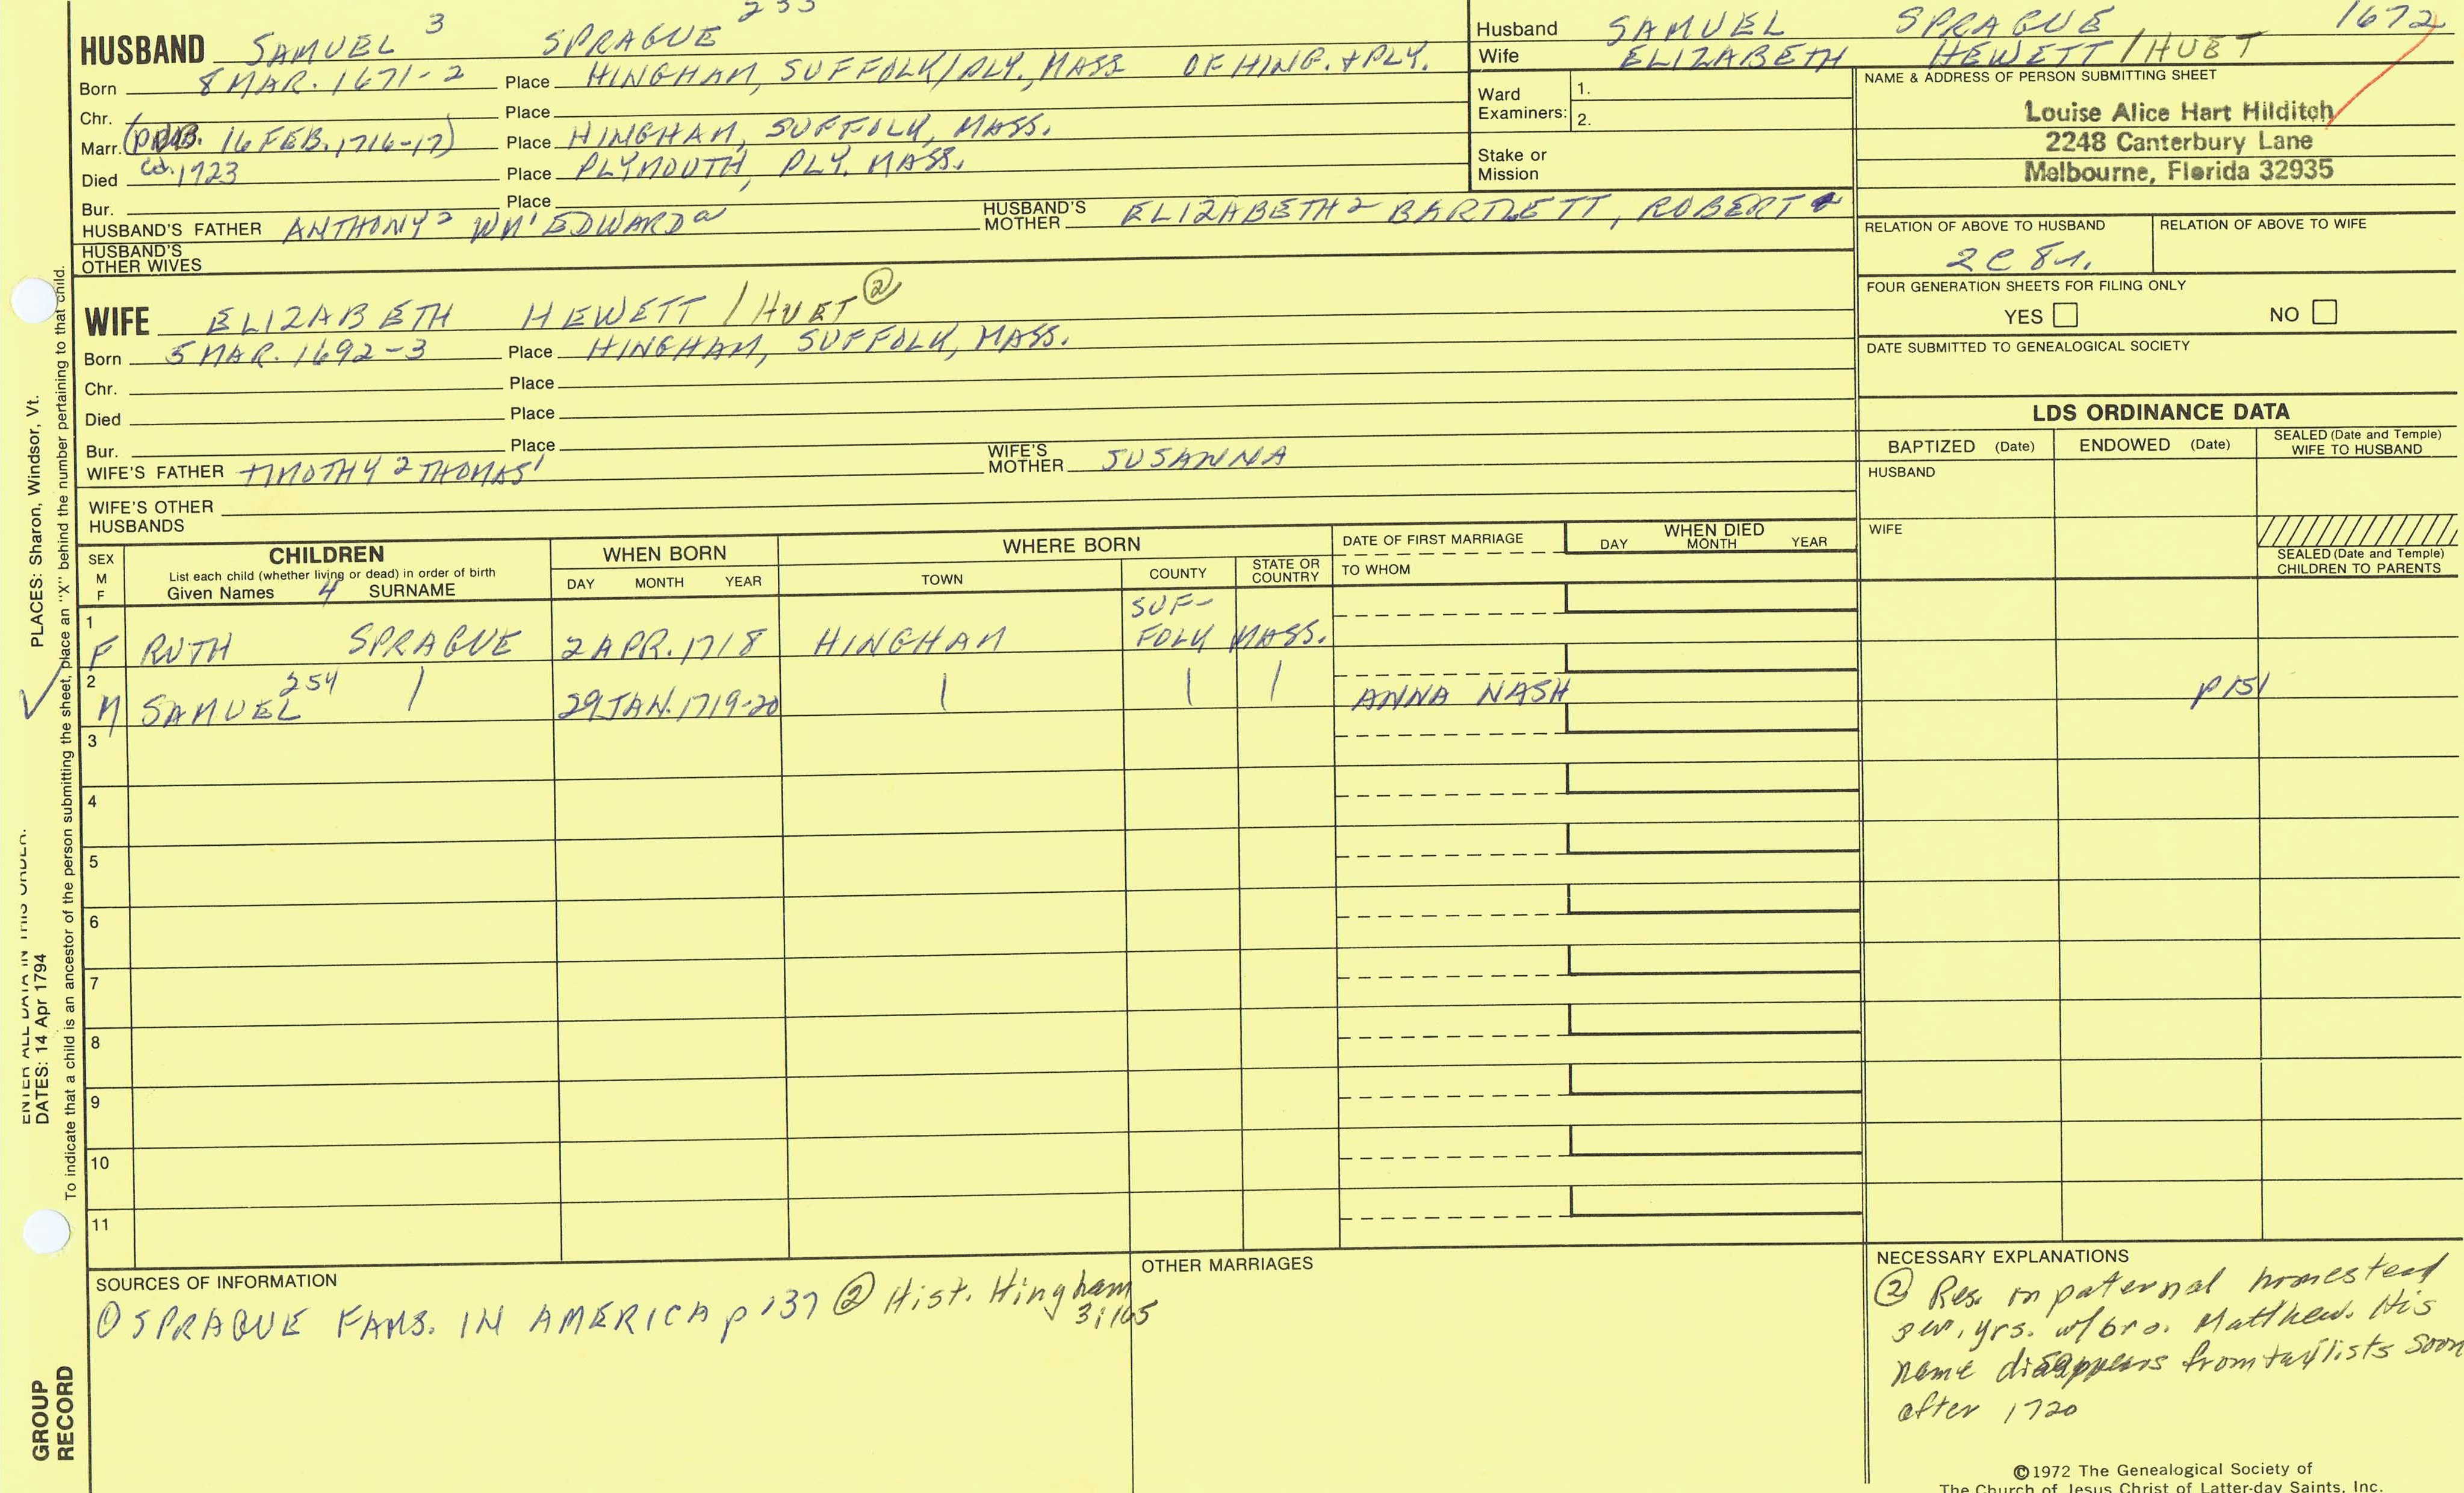 HUSBAND SAMUEL 3 SPRAGUE
Born 8 MAR. 1671-2 Place HINGHAM, SUFFOLK/PLY., MASS OF HING. + PLY.
Chr. Place
Marr. 16 FEB. 1716-17) Place HINGHAM, SUFFOLK, MASS.
Died 1723 Place PLYMOUTH, PLY. MASS.
Bur. Place
HUSBAND'S FATHER ANTHONY2 WM' EDWARDa HUSBAND'S MOTHER ELIZABETH 2 BARTLETT, ROBERT
HUSBAND'S OTHER WIVES
Husband SAMUEL SPRAGUE 1672
Wife ELIZABETH HEWETT / HUET
Ward Examiners: 1.
2.
Stake or Mission
NAME & ADDRESS OF PERSON SUBMITTING SHEET
Louise Alice Hart Hilditch
2248 Canterbury Lane
Melbourne, Florida 32935
RELATION OF ABOVE TO HUSBAND RELATION OF ABOVE TO WIFE
2C 8r.
FOUR GENERATION SHEETS FOR FILING ONLY
YES NO
DATE SUBMITTED TO GENEALOGICAL SOCIETY
WIFE ELIZABETH HEWETT / HUET ②
Born 5 MAR. 1692-3 Place HINGHAM, SUFFOLK, MASS.
Chr. Place
Died Place
Bur. Place
WIFE'S FATHER TIMOTHY 2 THOMAS' WIFE'S MOTHER SUSANNA
WIFE'S OTHER HUSBANDS
LDS ORDINANCE DATA
BAPTIZED (Date) ENDOWED (Date) SEALED (Date and Temple) WIFE TO HUSBAND
HUSBAND
WIFE
SEALED (Date and Temple) CHILDREN TO PARENTS
SEX M F CHILDREN WHEN BORN WHERE BORN DATE OF FIRST MARRIAGE WHEN DIED
List each child (whether living or dead) in order of birth
Given Names 4 SURNAME DAY MONTH YEAR TOWN COUNTY STATE OR COUNTRY TO WHOM DAY MONTH YEAR
1 F RUTH SPRAGUE 2 APR. 1718 HINGHAM SUF-FOLK MASS.
2 M SAMUEL 254 | 29 JAN. 1719-20 | | | ANNA NASH p151
3
4
5
6
7
8
9
10
11
SOURCES OF INFORMATION
① SPRAGUE FAMS. IN AMERICA p 137 ② Hist. Hingham
3:165
OTHER MARRIAGES
NECESSARY EXPLANATIONS
② Res. on paternal homestead
sev. yrs. w/ bro. Matthew. His
name disappears from tax lists soon
after 1720
©1972 The Genealogical Society of
The Church of Jesus Christ of Latter-day Saints, Inc.
PLACES: Sharon, Windsor, Vt.
ENTER ALL DATA IN THIS ORDER:
DATES: 14 Apr 1794
To indicate that a child is an ancestor of the person submitting the sheet, place an "X" behind the number pertaining to that child.
GROUP
RECORD